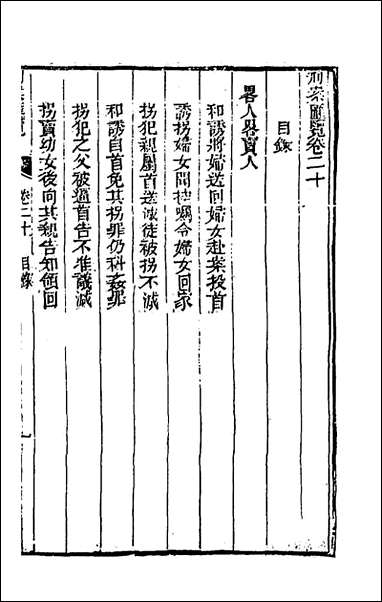 刑案匯覽卷二十
目錄
畧人畧賣人
和誘將婦送回婦女赴案投首
誘拐婦女聞控囑令婦女回家
拐犯親屬首送減徒被拐不減
和誘自首免其拐罪仍科姦罪
拐犯之父被逼首告不准議減
拐賣幼女後向其親告知領回
卷二十 目錄